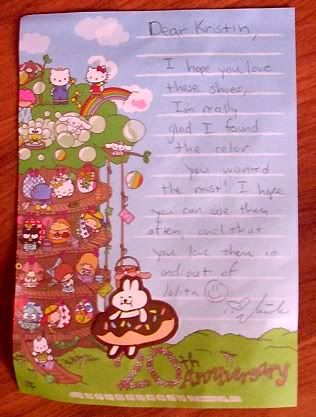 Dear Kristin,
I hope you love
these shoes,
I'm really
glad I found
the color
you wanted
the most! I hope
you can use them
often and that
you love them in
and out of
lolita
20th Anniversary